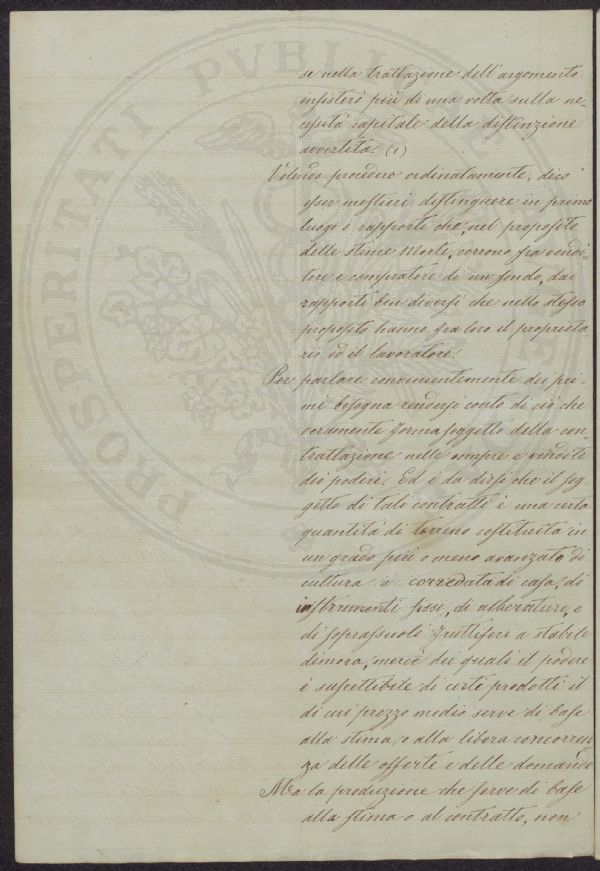 se nella trattazione dell'argomento
insisterò più di una volta sulla ne-
cessità capitale della distinzione
avvertita. (1)
Volendo procedere ordinatamente, dico
esser mestieri distinguere in primo
luogo i rapporti che, nel proposito
delle stime morte, corrono fra vendi-
tore e compratore di un fondo, dai
rapporti ben diversi che nello stesso
proposito hanno fra loro il proprieta
rio ed il lavoratore.
Per parlare convenientemente dei pri-
mi bisogna rendersi conto di ciò che
veramente forma soggetto della con-
trattazione nelle compre e vendite
dei poderi. Ed è da dirsi che il sog-
getto di tali contratti è una certa
quantità di terreno costituita in
un grado più o meno avanzato di
cultura e corredata di casa, di
instrumenti fissi, di alberature, e
di soprassuoli fruttiferi a stabile
dimora, mercè dei quali il podere
è suscettibile di certi prodotti il
di cui prezzo medio serve di base
alla stima, o alla libera concorren
za delle offerte e delle domande
Ma la produzione che serve di base
alla stima o al contratto, non
PROSPERITATI PVBLI